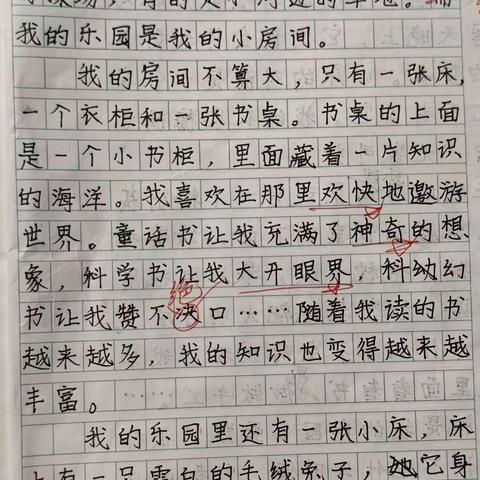 我的乐园是我的小房间。
我的房间不算大，只有一张床，
一个衣柜和一张书桌。书桌的上面
是一个小书柜，里面藏着一片知识
的海洋。我喜欢在那里欢快地遨游
世界。童话书让我充满了神奇的想
象，科学书让我大开眼界，科幻
绝
书让我赞不决口……随着我读的书
越来越多，我的知识也变得越来越
丰富。
我的乐园里还有一张小床，床
上有一只雪白的毛绒兔子，它身